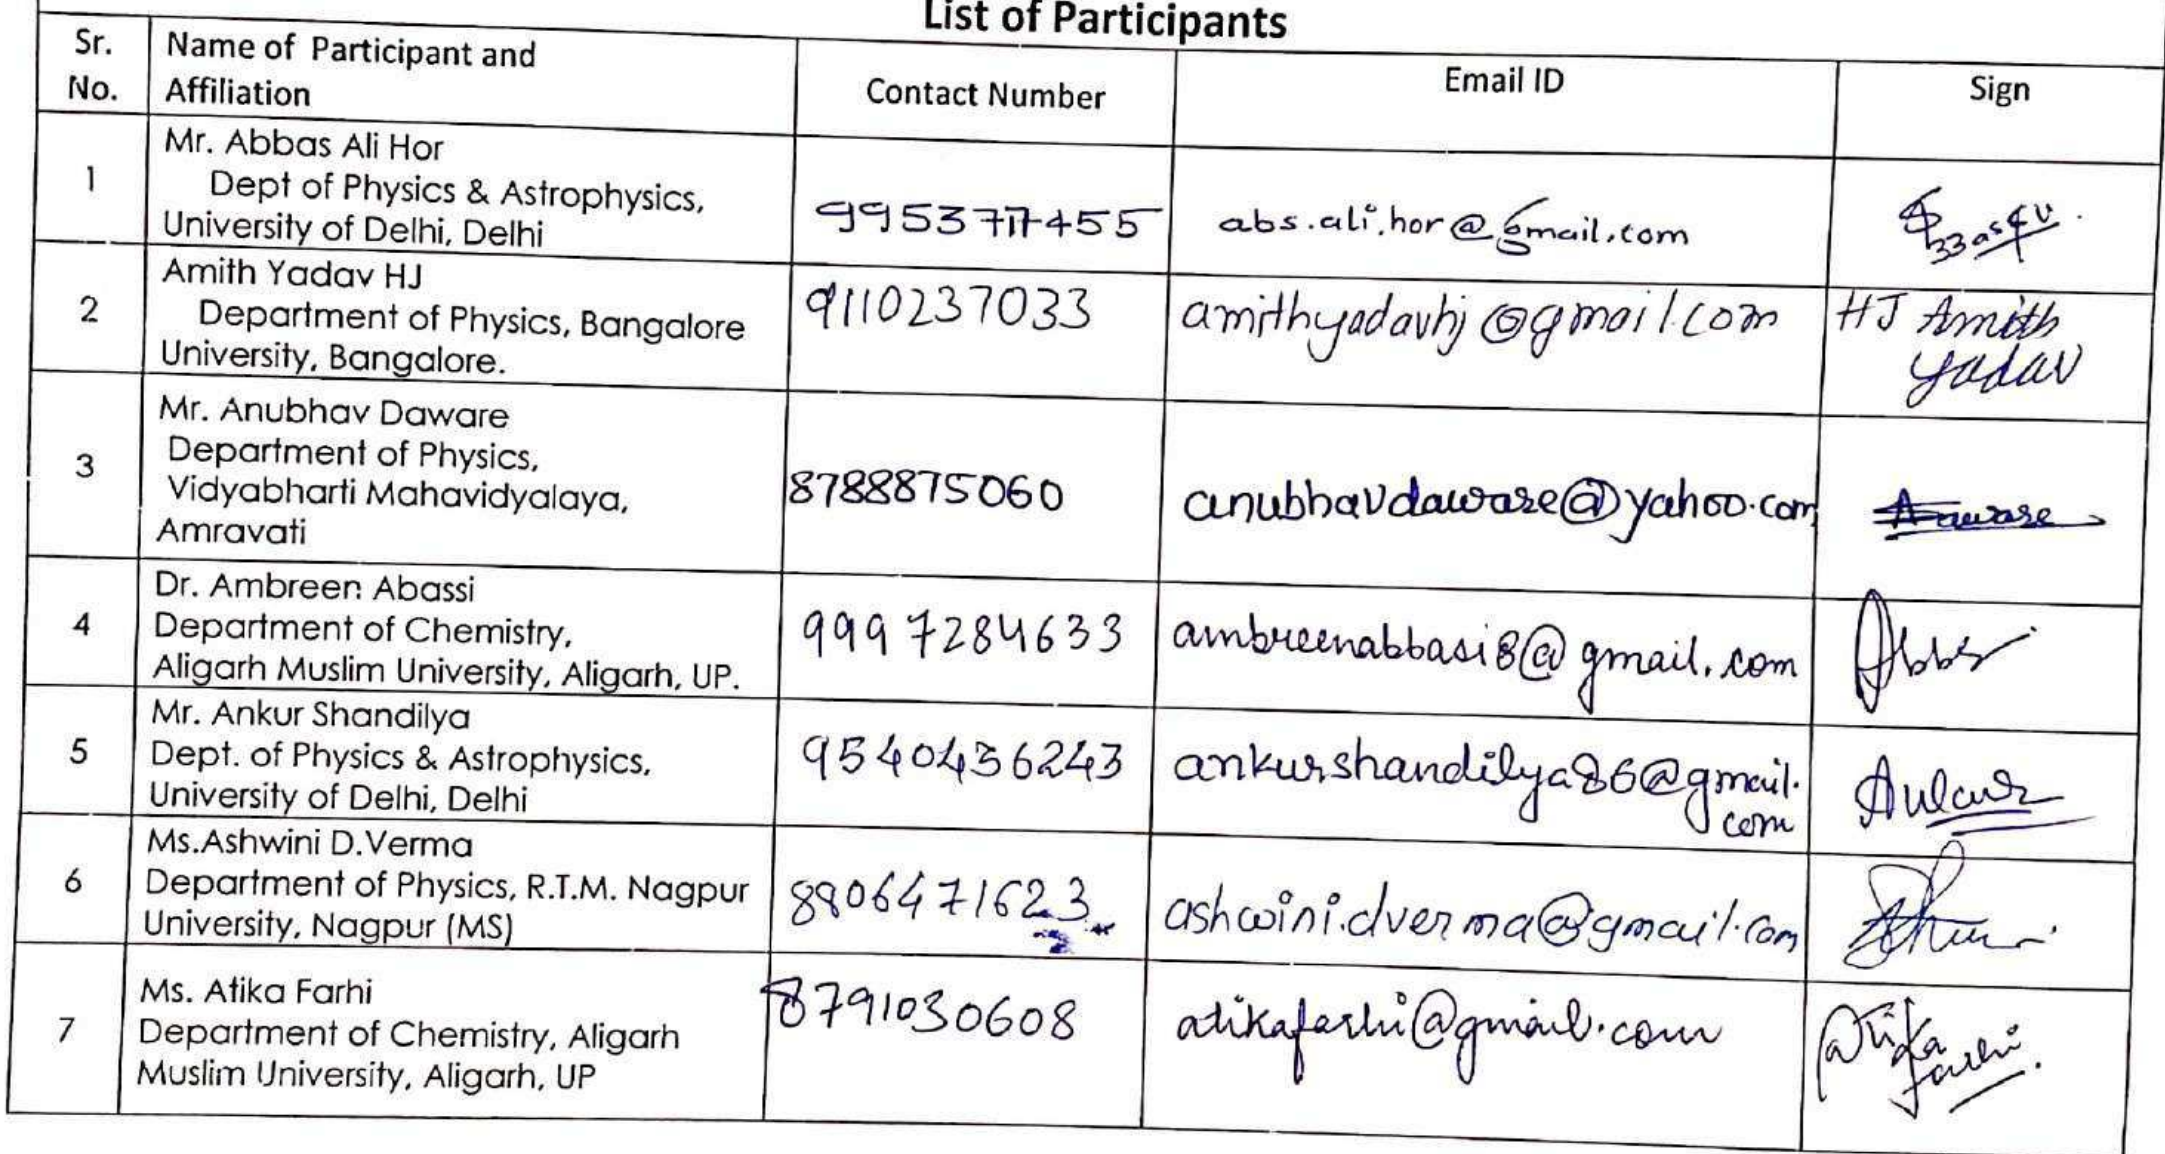 List of Participants
Sr. No. Name of Participant and Affiliation Contact Number Email ID Sign
1
Mr. Abbas Ali Hor
Dept of Physics & Astrophysics,
University of Delhi, Delhi
abs.ali.hor@gmail.com
2
Amith Yadav HJ
Department of Physics, Bangalore
University, Bangalore.
9110237033
amithyadavhj@gmail.com
HJ Amith
Yadav
3
Mr. Anubhav Daware
Department of Physics,
Vidyabharti Mahavidyalaya,
Amravati
8788875060
anubhavdaware@yahoo.com
4
Dr. Ambreen Abassi
Department of Chemistry,
Aligarh Muslim University, Aligarh, UP.
9997284633
ambreenabbasi8@gmail.com
5
Mr. Ankur Shandilya
Dept. of Physics & Astrophysics,
University of Delhi, Delhi
9540436243
ankurshandilya86@gmail.
com
Ankur
6
Ms.Ashwini D.Verma
Department of Physics, R.T.M. Nagpur
University, Nagpur (MS)
8806471623
ashwini.dverma@gmail.com
7
Ms. Atika Farhi
Department of Chemistry, Aligarh
Muslim University, Aligarh, UP
8791030608
atikafarhi@gmail.com
Atika
Farhi